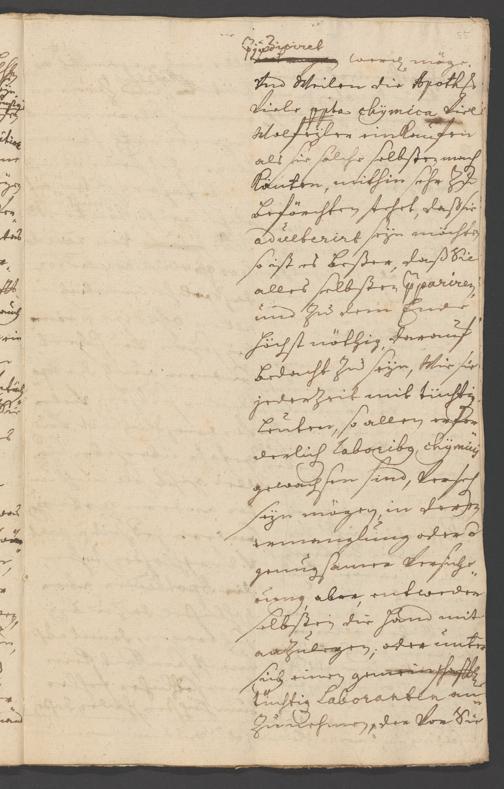 55
werden möge.
Und Weilen die Apothek
Viele ppta chÿmica Viel
Wolfeÿler einkauffen
als sie solche selbsten mach
Könten, mithin sehr zu
beförchten stehet, daß sie
adulterirt seÿn möchten
so ist es beßer, daß Sie
alles selbsten ppariren,
und zu dem Ende
höchst nöthig, darauf
bedacht zu seÿn, wie sie
jederzeit mit tüchti
Leuten, so allen erfor
derlich laboribg chÿmicis
gewachsen sind, Verseh
seÿn mögen, in deren
ermanglung oder
genugsamer Versiche
rung aber, entweder
selbsten die Hand mit
anzulegen, oder unter
sich einen gemeinschafftl
tüchtig Laboranten an
Zunehmen, der Von Sie